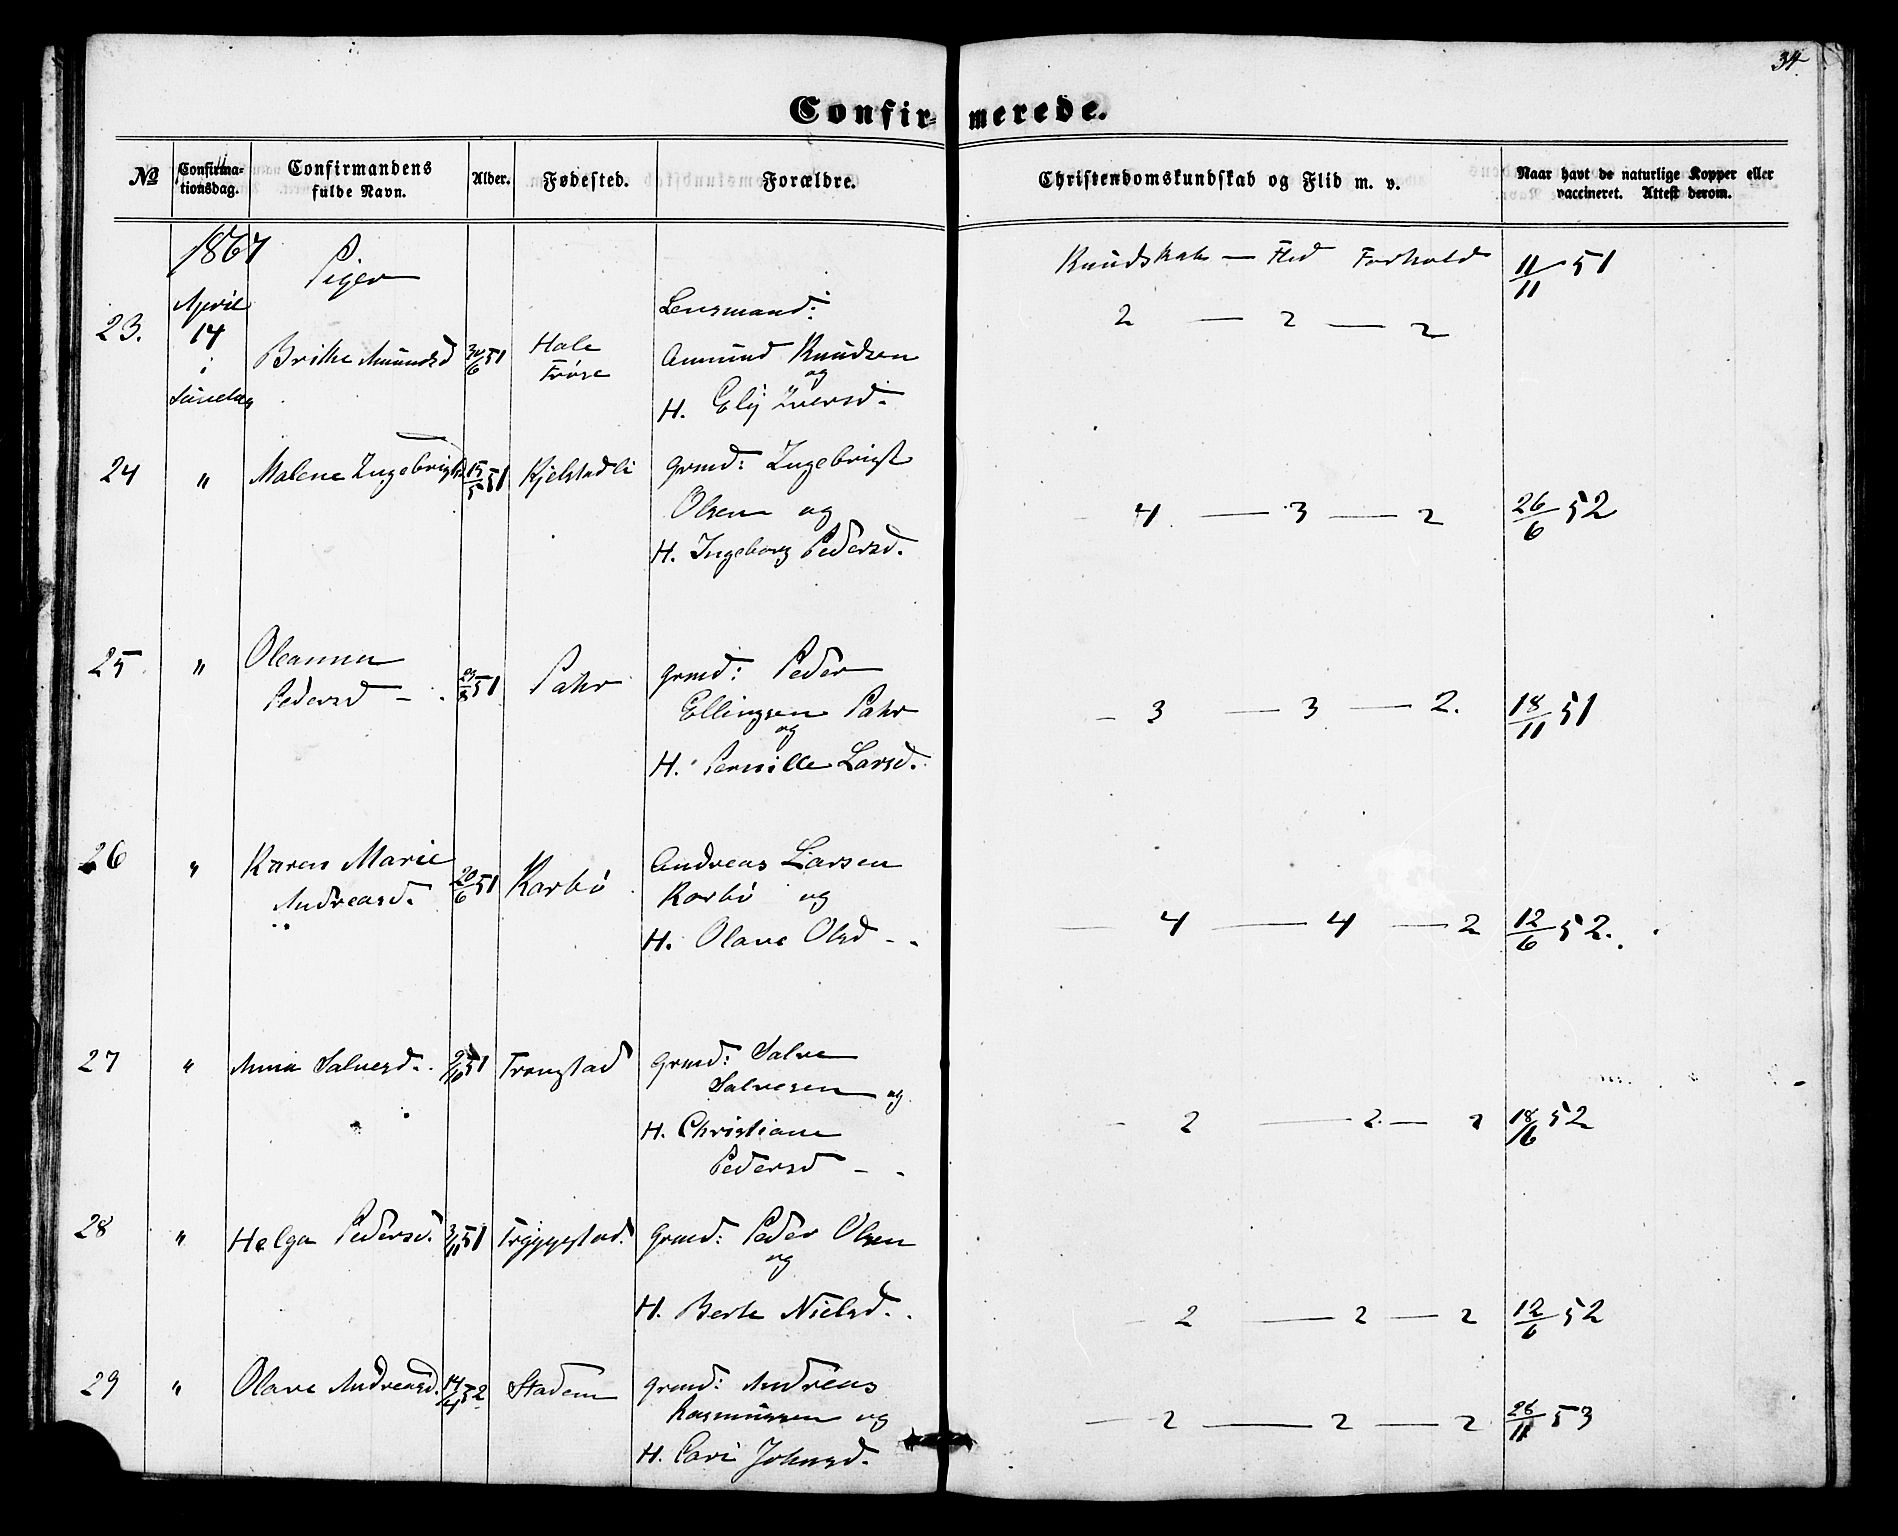 34.
Confirmerede.
No
Confirmationsdag.
Confirmandens fulde Navn.
Alder.
Fødested.
Forældre.
Christendomskundskab og Flid m. v.
Naar havt de naturlige Kopper eller vaccineret. Attest derom.
1867 Piger
Kundskab — Flid Forhold
23. April 14 i Sundag Brithe Amundsd 30/6 51 Hole
Lensmand:
Amund Knudsen
og
H. Eli Iversd.
2 — 2 — 2 11/11 51
24 " Malene Ingebrigtsd 15/5 51 Kjelstadli grmd: Ingebrigt
Olsen og
H. Ingeborg Pedersd.
4 — 3 — 2 26/6 52
25 " Oleanna
Pedersd — 51 Pahr grmd: Peder
Ellingsen Pahr
og
H. Pernille Larsd.
— 3 — 3 — 2. 18/11 51
26 " Karen Marie
Andreasd. 20/6 51 Karbö Andreas Larsen
Karbö og
H. Olave Olsd -
— 4 — 4 — 2 12/6 52.
27 " Anna Salvesd. 51 Trongstad grmd: Salve
Salvesen og
H. Christiane
Pedersd —
— 2 — 2 — 2 18/6 52
28 " Helga Pedersd. 3/11 51 Tryggestad. grmd: Peder Olsen
og
H. Berte Nielsd.
— 2 — 2 — 2 12/6 52
29 " Olave Andreasd. 14/4 52 Stadem grmd: Andreas
Rasmussen og
H. Pari Johnsd.
— 2 — 2 — 2 26/11 53